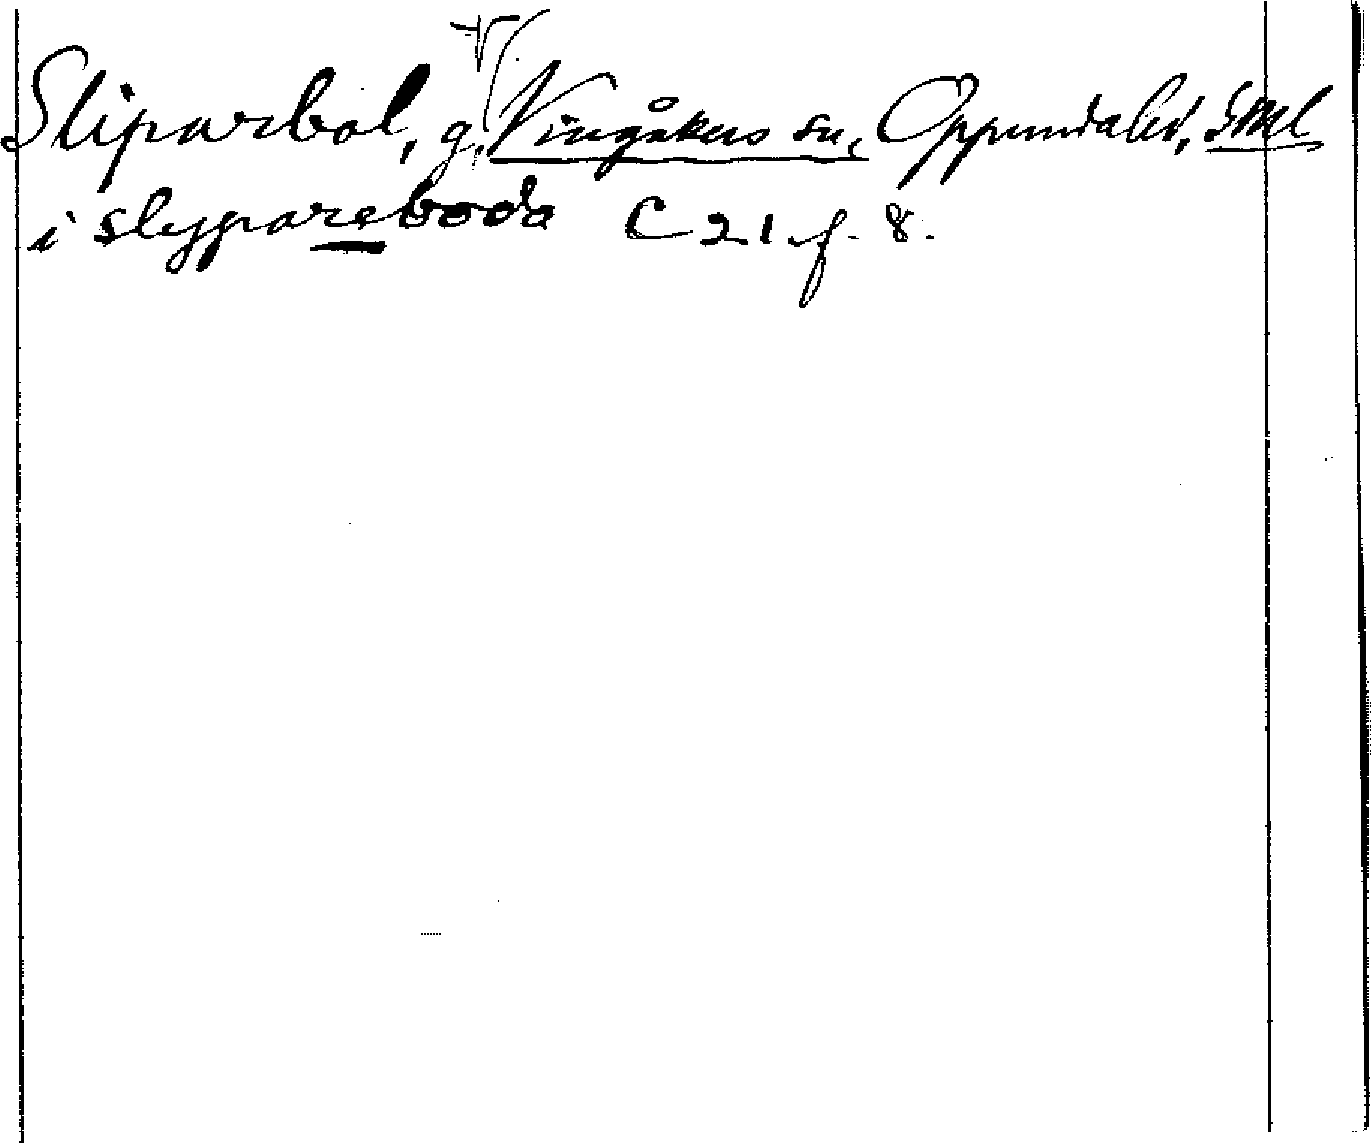 V
Sliparbol, g. Vingåkers sn, Oppundahd, Sml
i slyppareboda C 21 f. 8.